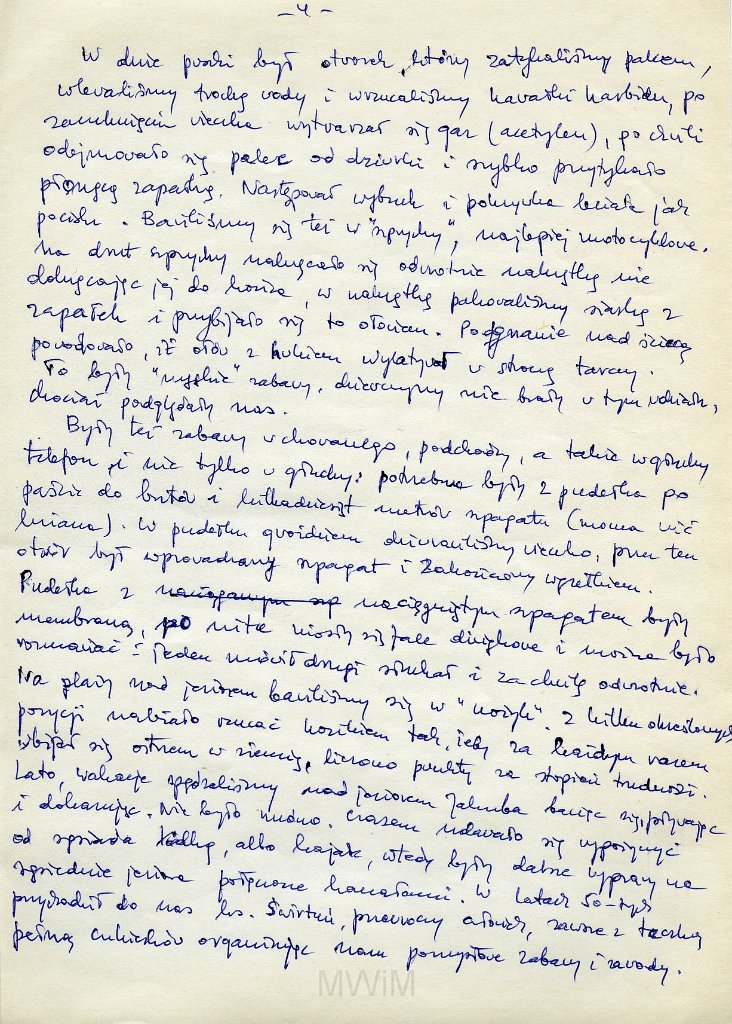 - 4 -
W dnie puszki był otworek, który zatykaliśmy palcem,
wlewaliśmy trochę wody i wrzucaliśmy kawałki karbidu, po
zamknięciu wieczka wytwarzał się gaz (acetylen), po chwili
odejmowało się palec od dziurki i szybko przytykało
płonącą zapałkę. Następował wybuch i pokrywka leciała jak
pocisk. Bawiliśmy się też w "szprychy", najlepiej motocyklowe.
Na drut szprychy nakręcało się odwrotnie nakrętkę nie
dokręcając jej do końca, w nakrętkę pakowaliśmy siarkę z
zapałek i przybijało się to ołowiem. Podgrzanie nad świecą
powodowało, iż ołów z hukiem wylatywał w stronę tarczy.
To były "męskie" zabawy, dziewczyny nie brały w tym udziału,
chociaż podglądały nas.
Były też zabawy w chowanego, podchody, a także w głuchy
telefon, i nie tylko w głuchy: potrzebne były 2 pudełka po
paście do butów i kilkadziesiąt metrów szpagatu (mocna nić
lniana). W pudełku gwoździem dziurawiliśmy wieczko, przez ten
otwór był wprowadzany szpagat i zakończony węzełkiem.
Pudełka z naciągniętym szpagatem były
membraną, po nitce niosły się fale dźwiękowe i można było
rozmawiać - jeden mówił drugi słuchał i za chwilę odwrotnie.
Na plaży nad jeziorem bawiliśmy się w "nożyk". Z kilku określonych
pozycji należało rzucać kozikiem tak, żeby za każdym razem
wbijał się ostrzem w ziemię, liczono punkty za stopień trudności.
Lato, wakacje spędzaliśmy nad jeziorem bawiąc się, pływając
i dokazując. Nie było nudno. Czasem udawało się wypożyczyć
od sąsiada łódkę, albo kajak, wtedy były dalsze wyprawy na
sąsiednie jeziora połączone kanałami. W latach 50-tych
przychodził do nas ks. przeuroczy człowiek, zawsze z teczką
pełną cukierków organizując nam pomysłowe zabawy i zawody.
MWiM